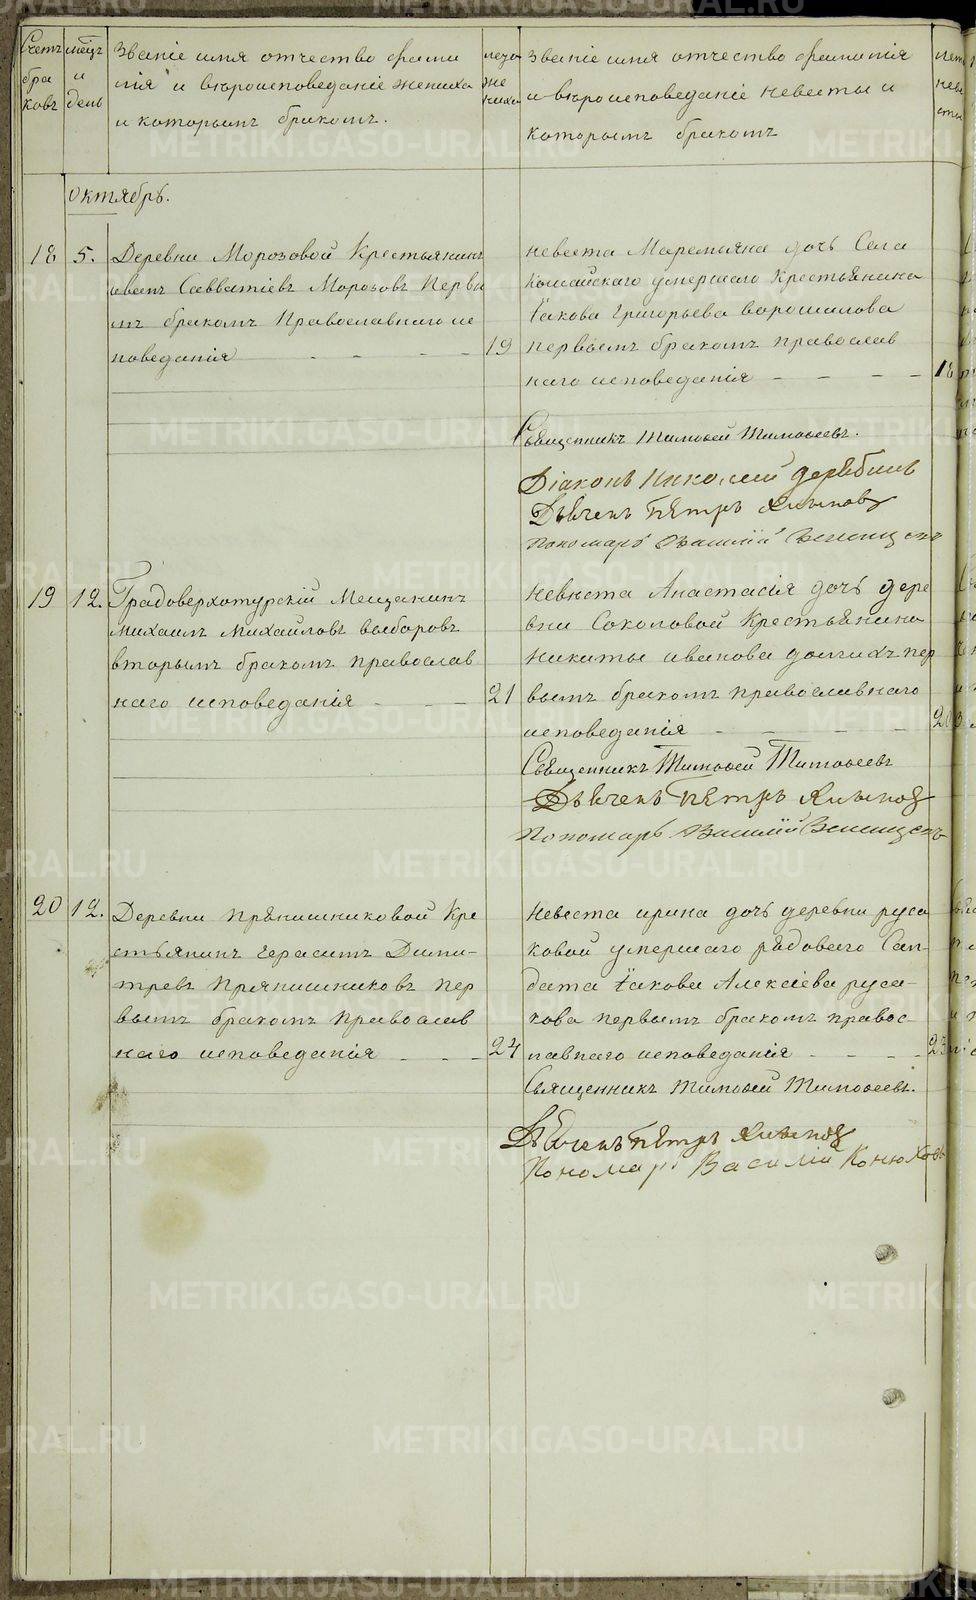 Счетъ браковъ
мѣсцъ и день
Званіе имя отчество фами
лія и вѣроисповеданіе жениха
и которымъ бракомъ.
лета жениха
Званіе имя отчество фамилія
и вѣроисповеданіе невесты и
которымъ бракомъ
лета невесты
Октябрь.
18 5.
Деревни Морозовой Крестьянинъ
иванъ Савватіевъ Морозовъ Первы
мъ бракомъ Православнаго ис
поведанія 19
невеста Маремьяна дочь Села
Кошайскаго умершаго Крестьянина
Іакова Григорьева ворошилова
первымъ бракомъ православ
наго исповеданія 18
Священникъ Тимофей Тимофеевъ.
Діаконъ Николай дерябинъ
Дьячекъ Петръ
Пономарь Василій
19 12.
Градоверхотурскій Мещанинъ
михаилъ михайловъ выборовъ
вторымъ бракомъ православ
наго исповеданія 21
невеста Анастасія дочь дере
вни Соколовой Крестьянина
никиты иванова долгихъ пер
вымъ бракомъ православнаго
исповеданія 20
Священникъ Тимофей Тимофеевъ
Дьячекъ Петръ
Пономарь Василій
20 12.
Деревни прянишниковой Кре
стьянинъ герасимъ Дими-
тревъ Прянишниковъ пер
вымъ бракомъ православ
наго исповеданія 24
невеста ирина дочь деревни руса
ковой умершаго рядоваго Сал-
дата Іакова Алексіева руса-
кова первымъ бракомъ правос-
лавнаго исповеданія 23
Священникъ Тимофей Тимофеевъ.
Дьячекъ Петръ
Пономарь Василій Конюховъ
METRIKI.GASO-URAL.RU